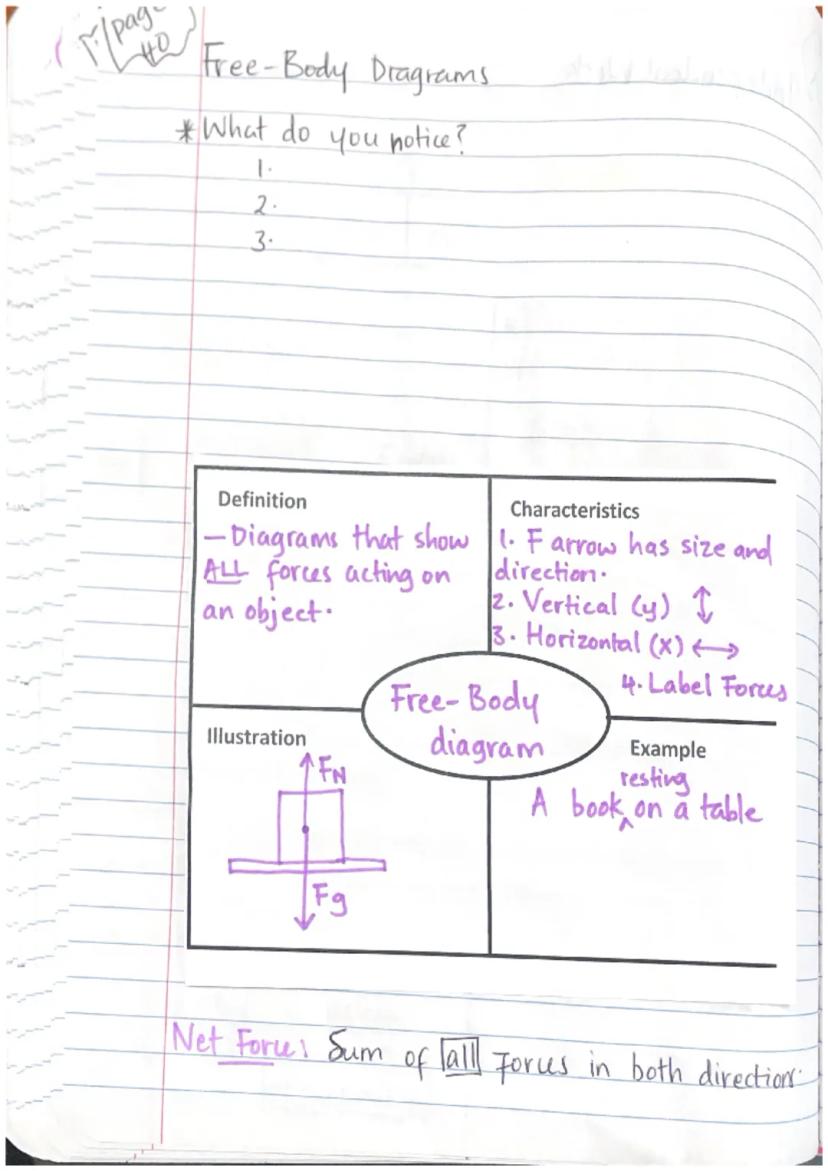 page
40
Free-Body Diagrams
* What do you notice?
1.
2.
3.
Definition
- Diagrams that show
ALL forces acting on
an object.
Characteristics
1. F arrow has size and
direction.
2. Vertical (y) ↕
3. Horizontal (x) ↔
4. Label Forces
Free-Body
diagram
Illustration
FN
Fg
Example
resting
A book ^ on a table
Net Force: Sum of all Forces in both direction.